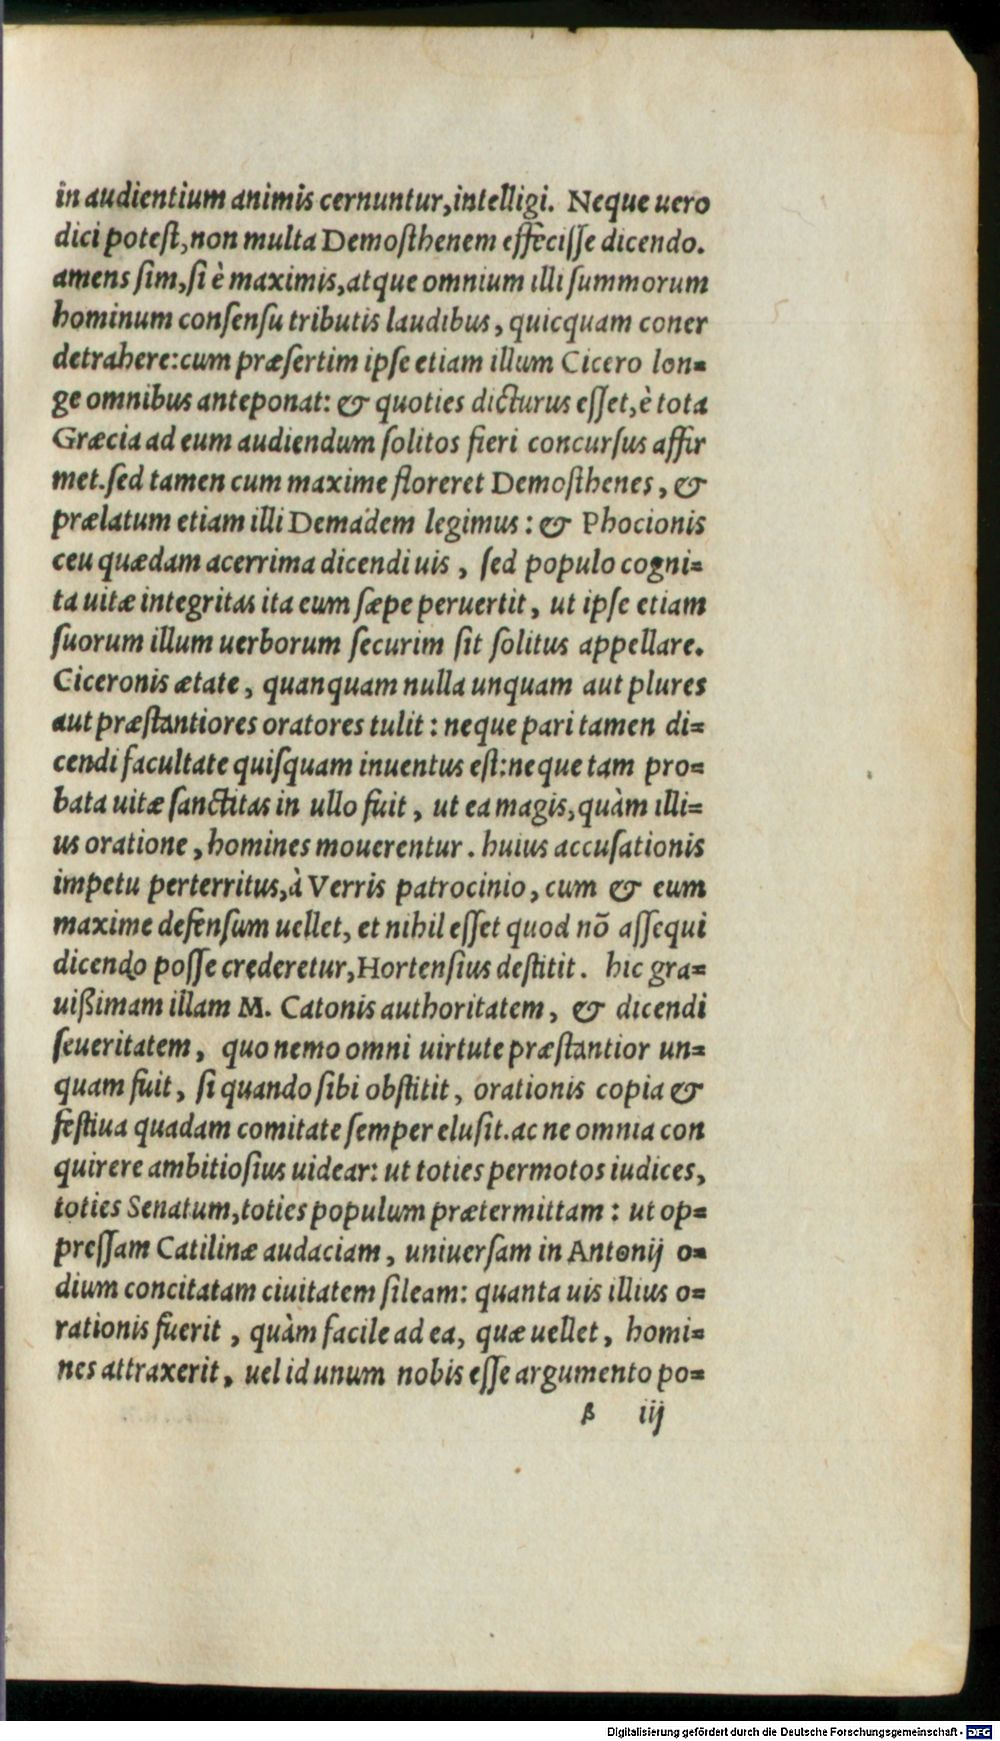 in audientium animis cernuntur,intelligi. Neque uero
dici potest,non multa Demosthenem effecisse dicendo.
amens sim,si è maximis,atque omnium illi summorum
hominum consensu tributis laudibus, quicquam coner
detrahere:cum præsertim ipse etiam illum Cicero lon=
ge omnibus anteponat: & quoties dicturus esset,è tota
Græcia ad eum audiendum solitos fieri concursus affir
met.sed tamen cum maxime floreret Demosthenes, &
prælatum etiam illi Demadem legimus: & Phocionis
ceu quædam acerrima dicendi uis, sed populo cogni=
ta uitæ integritas ita eum sæpe peruertit, ut ipse etiam
suorum illum uerborum securim sit solitus appellare.
Ciceronis ætate, quanquam nulla unquam aut plures
aut præstantiores oratores tulit: neque pari tamen di=
cendi facultate quisquam inuentus est:neque tam pro=
bata uitæ sanctitas in ullo fuit, ut ea magis,quàm illi=
us oratione, homines mouerentur. huius accusationis
impetu perterritus,à Verris patrocinio, cum & eum
maxime defensum uellet, et nihil esset quod nõ assequi
dicendo posse crederetur,Hortensius destitit. hic gra=
uißimam illam M. Catonis authoritatem, & dicendi
seueritatem, quo nemo omni uirtute præstantior un=
quam fuit, si quando sibi obstitit, orationis copia &
festiua quadam comitate semper elusit.ac ne omnia con
quirere ambitiosius uidear: ut toties permotos iudices,
toties Senatum,toties populum prætermittam: ut op=
pressam Catilinæ audaciam, uniuersam in Antonij o=
dium concitatam ciuitatem sileam: quanta uis illius o=
rationis fuerit, quàm facile ad ea, quæ uellet, homi=
nes attraxerit, uel id unum nobis esse argumento po=
β iij
Digitalisierung gefördert durch die Deutsche Forschungsgemeinschaft - DFG